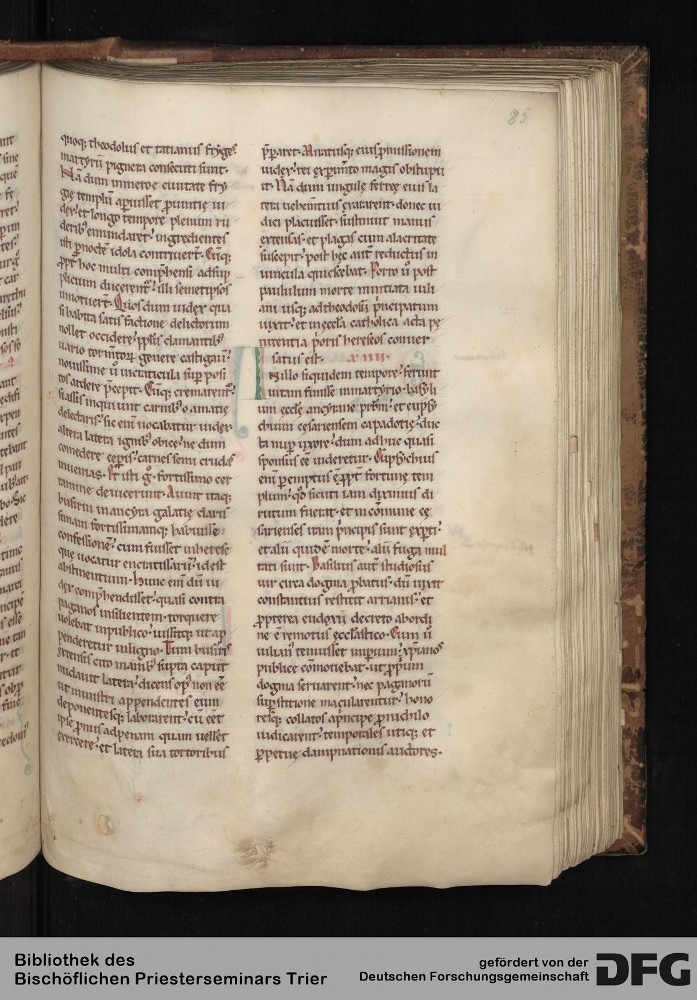 85
quoq; theodolus et tatianus fryge⁹
martyrii pigneta consecuti sunt·
Nā dum mineroe ciuitate fry
gię templū apuisset ꝓuintię iu
dex· et longo tempore plenum ru
derib; emundaret· ingredientes
isti ꝑ nocte idola contriuert̄· Cūq;
ꝓpt̄ hoc multi comp̄hensi ad sup
plicium ducerent̄· illi semetipsos
innotuert̄· Quos dum iudex qua
si habita satisfactione delictorum
nollet occidere·
uario tormtorū genere castigauī·
nouissime ū in craticula sup posi
tos ardere p̄cepit· Cūq; cremarent̄
si assis inquiunt carnib; o amatie
delectaris· sic enī uocabatur iudex·
altera latera ignib; obice· ne dum
comedere cęperis· carnes semi crudas
inuenias· Et isti g° fortissimo cer
tamine deuicerunt· Aiunt itaq;
busirin in ancyra galatię claris
simam fortissimamq; habuisse
confessionē· cum fuisset in herese
que uocatur encratissarū· id est
abstinentium· Hunc enī dū iu
dex comp̄hendisset· quasi contra
paganos insilientem· torquere
uolebat in publico· iussitq; ut ap
penderetur in ligno· Tum busiris
extensis cito manib; supra caput
nudauit latera· dicens op⁹ non eē
ut ministri appendentes eum
deponentesq; laborarent· cū eēt
ipse ꝓnus ad penam quam uellet
exercere· et latera sua tortoribus
p̄pararet· Miratusq; eius ꝓmissionem
iudex· rei expimto magis obstipu
it· Nā dum ungulę ferreę eius la
tera uehemtius exararent· donec iu
dici placuisset· sustinuit manus
extensas· et plagas cum alacritate
suscepit· post hęc aut reductus in
uincula quiescebat· Porro ū post
paululum morte nuntiata iuli
ani usq; ad theodosii p̄ncipatum
uixit· et in ęccła catholica acta pę
nitentia p̄oris hereseos conuer
satus est· x·iiii·
In illo siquidem tempore· ferunt
uitam finisse in martyrio· basyli
um eccłę ancyrane p̄brm̄· et eupsy
chium cęsariensem capadotię· duc
ta nup uxore· dum adhuc quasi
sponsus eē uideretur· Eupsychius
enī pemptus ē ꝓpt̄ fortunę tem
plum· qđ sicuti iam diximus di
rutum fuerat· et in cōmune cę
sarienses iram p̄ncipis sunt expti·
et alii quidē morte· alii fuga mul
tati sunt· Basilius aut studiosus
uir circa dogma ꝓbatus· dū uixit
constantius restitit arrianis· et
ꝓpterea eudoxii decreto a bordi
ne ē remotus ecclesiastico· Cum ū
iulian⁹ tenuisset imperium· xp̄ianos
publice cōmonebat· ut ꝓprium
dogma seruarent· nec paganorū
supstitione macularentur· hono
resq; collatos a p̄ncipe ꝓ nichilo
iudicarent· temporales utiq; et
ppetuę dampnationis auctores·
Bibliothek des
Bischöflichen Priesterseminars Trier
gefördert von der
Deutschen Forschungsgemeinschaft
DFG